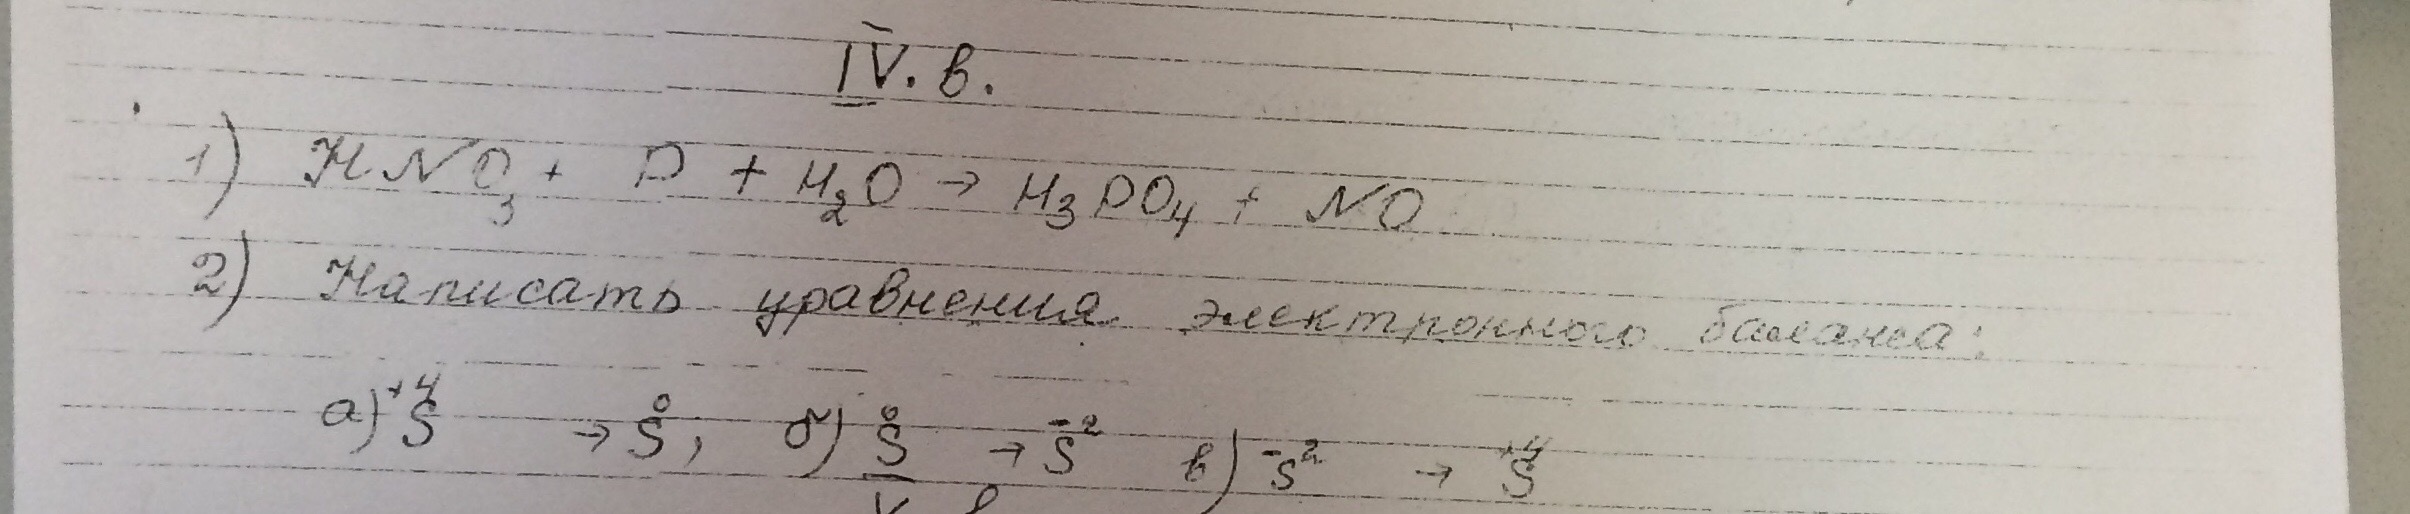 IV. в.
1) HNO₃ + P + H₂O → H₃PO₄ + NO
2) Написать уравнения электронного баланса:
а) S⁺⁴ → S⁰; б) S⁰ → S⁻² в) S⁻² → S⁺⁴
V в